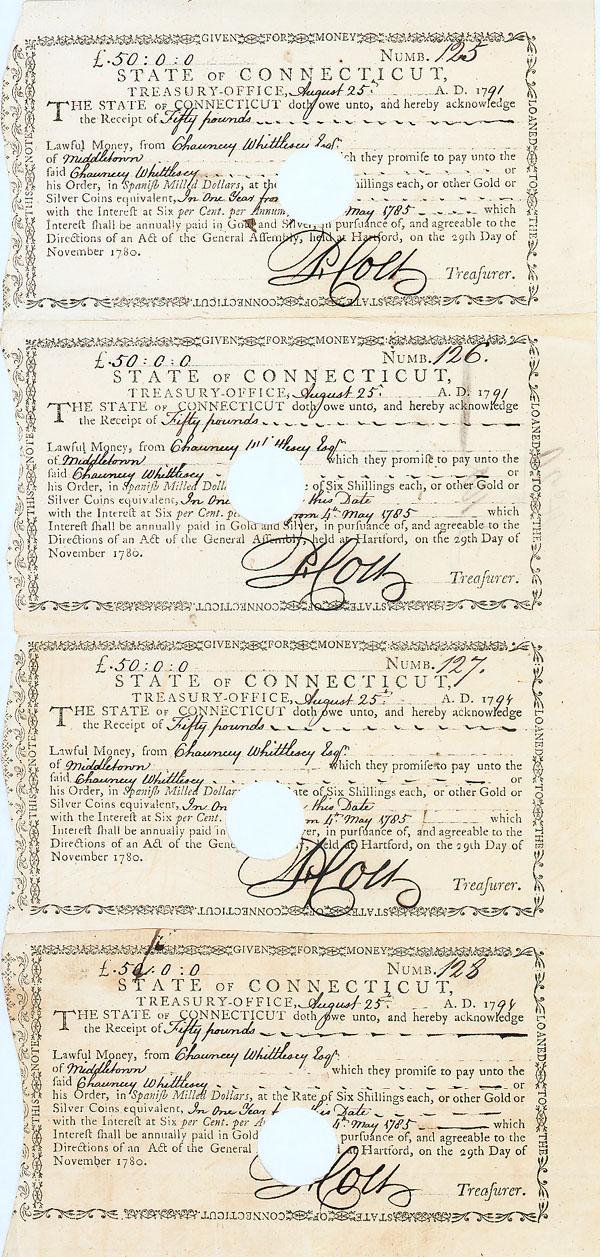 GIVEN FOR MONEY
£.50:0:0 NUMB. 125
STATE OF CONNECTICUT,
TREASURY-OFFICE, August 25th A. D. 1791
THE STATE OF CONNECTICUT doth owe unto, and hereby acknowledge
the Receipt of Fifty pounds
Lawful Money, from Chauncey Whittlesey Esqr
of Middletown ich they promise to pay unto the
said Chauncey Whittlesey or
his Order, in Spanish Milled Dollars, at the hillings each, or other Gold or
Silver Coins equivalent, In One Year from
with the Interest at Six per Cent. per Annum, May 1785 which
Interest shall be annually paid in Gold and Silver, in pursuance of, and agreeable to the
Directions of an Act of the General Assembly, held at Hartford, on the 29th Day of
November 1780.
P. Colt Treasurer.
STATE OF CONNECTICUT.
THIS NOTE
LOANED TO THE
GIVEN FOR MONEY
£.50:0:0 NUMB. 126.
STATE OF CONNECTICUT,
TREASURY-OFFICE, August 25th A. D. 1791
THE STATE OF CONNECTICUT doth owe unto, and hereby acknowledge
the Receipt of Fifty pounds
Lawful Money, from Chauncey Whittlesey Esqr
of Middletown which they promise to pay unto the
said Chauncey Whittlesey or
his Order, in Spanish Milled Dolla e of Six Shillings each, or other Gold or
Silver Coins equivalent, In One this Date
with the Interest at Six per Cent. pe from 4th May 1785 which
Interest shall be annually paid in Gold and Silver, in pursuance of, and agreeable to the
Directions of an Act of the General Assembly, held at Hartford, on the 29th Day of
November 1780.
P. Colt Treasurer.
STATE OF CONNECTICUT.
THIS NOTE
LOANED TO THE
GIVEN FOR MONEY
£.50:0:0 NUMB. 127.
STATE OF CONNECTICUT,
TREASURY-OFFICE, August 25th A. D. 1791
THE STATE OF CONNECTICUT doth owe unto, and hereby acknowledge
the Receipt of Fifty pounds
Lawful Money, from Chauncey Whittlesey Esqr
of Middletown which they promise to pay unto the
said Chauncey Whittlesey or
his Order, in Spanish Milled Dollar ate of Six Shillings each, or other Gold or
Silver Coins equivalent, In On this Date
with the Interest at Six per Cent. om 4th May 1785 which
Interest shall be annually paid in ver, in pursuance of, and agreeable to the
Directions of an Act of the Gene held at Hartford, on the 29th Day of
November 1780.
P. Colt Treasurer.
STATE OF CONNECTICUT.
THIS NOTE
LOANED TO THE
GIVEN FOR MONEY
£.50:0:0 NUMB. 128
STATE OF CONNECTICUT,
TREASURY-OFFICE, August 25th A. D. 1791
THE STATE OF CONNECTICUT doth owe unto, and hereby acknowledge
the Receipt of Fifty pounds
Lawful Money, from Chauncey Whittlesey Esqr
of Middletown which they promise to pay unto the
said Chauncey Whittlesey or
his Order, in Spanish Milled Dollars, at the Rate of Six Shillings each, or other Gold or
Silver Coins equivalent, In One Year this Date
with the Interest at Six per Cent. per A 4th May 1785 which
Interest shall be annually paid in Gold pursuance of, and agreeable to the
Directions of an Act of the General Hartford, on the 29th Day of
November 1780.
P. Colt Treasurer.
STATE OF CONNECTICUT.
THIS NOTE
LOANED TO THE